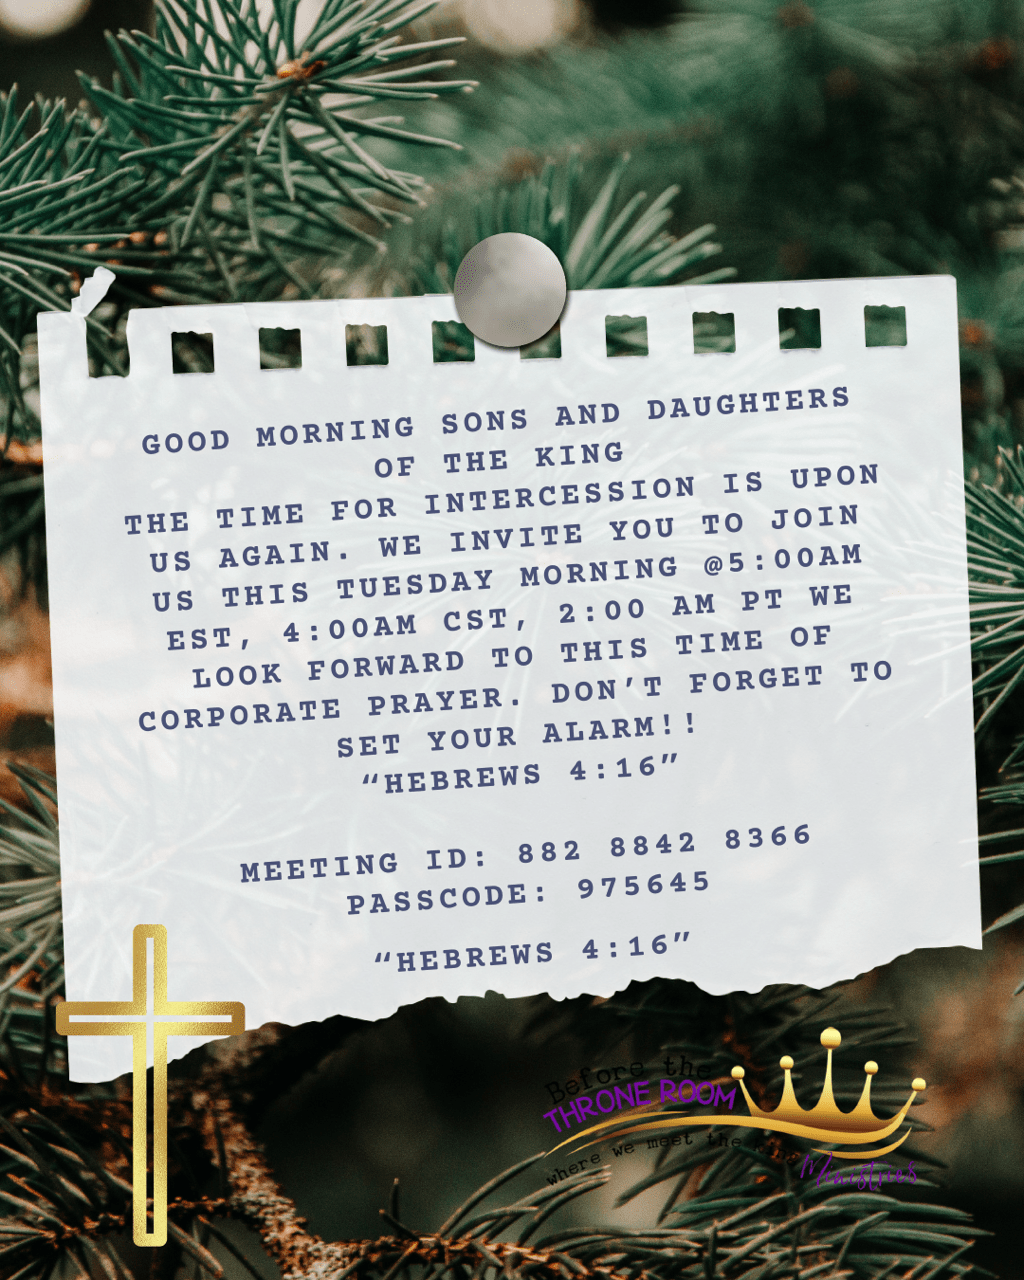 GOOD MORNING SONS AND DAUGHTERS
OF THE KING
THE TIME FOR INTERCESSION IS UPON
US AGAIN. WE INVITE YOU TO JOIN
US THIS TUESDAY MORNING @5:00AM
EST, 4:00AM CST, 2:00 AM PT WE
LOOK FORWARD TO THIS TIME OF
CORPORATE PRAYER. DON’T FORGET TO
SET YOUR ALARM!!
“HEBREWS 4:16”
MEETING ID: 882 8842 8366
PASSCODE: 975645
“HEBREWS 4:16”
Before the
THRONE ROOM
where we meet the King
Ministries